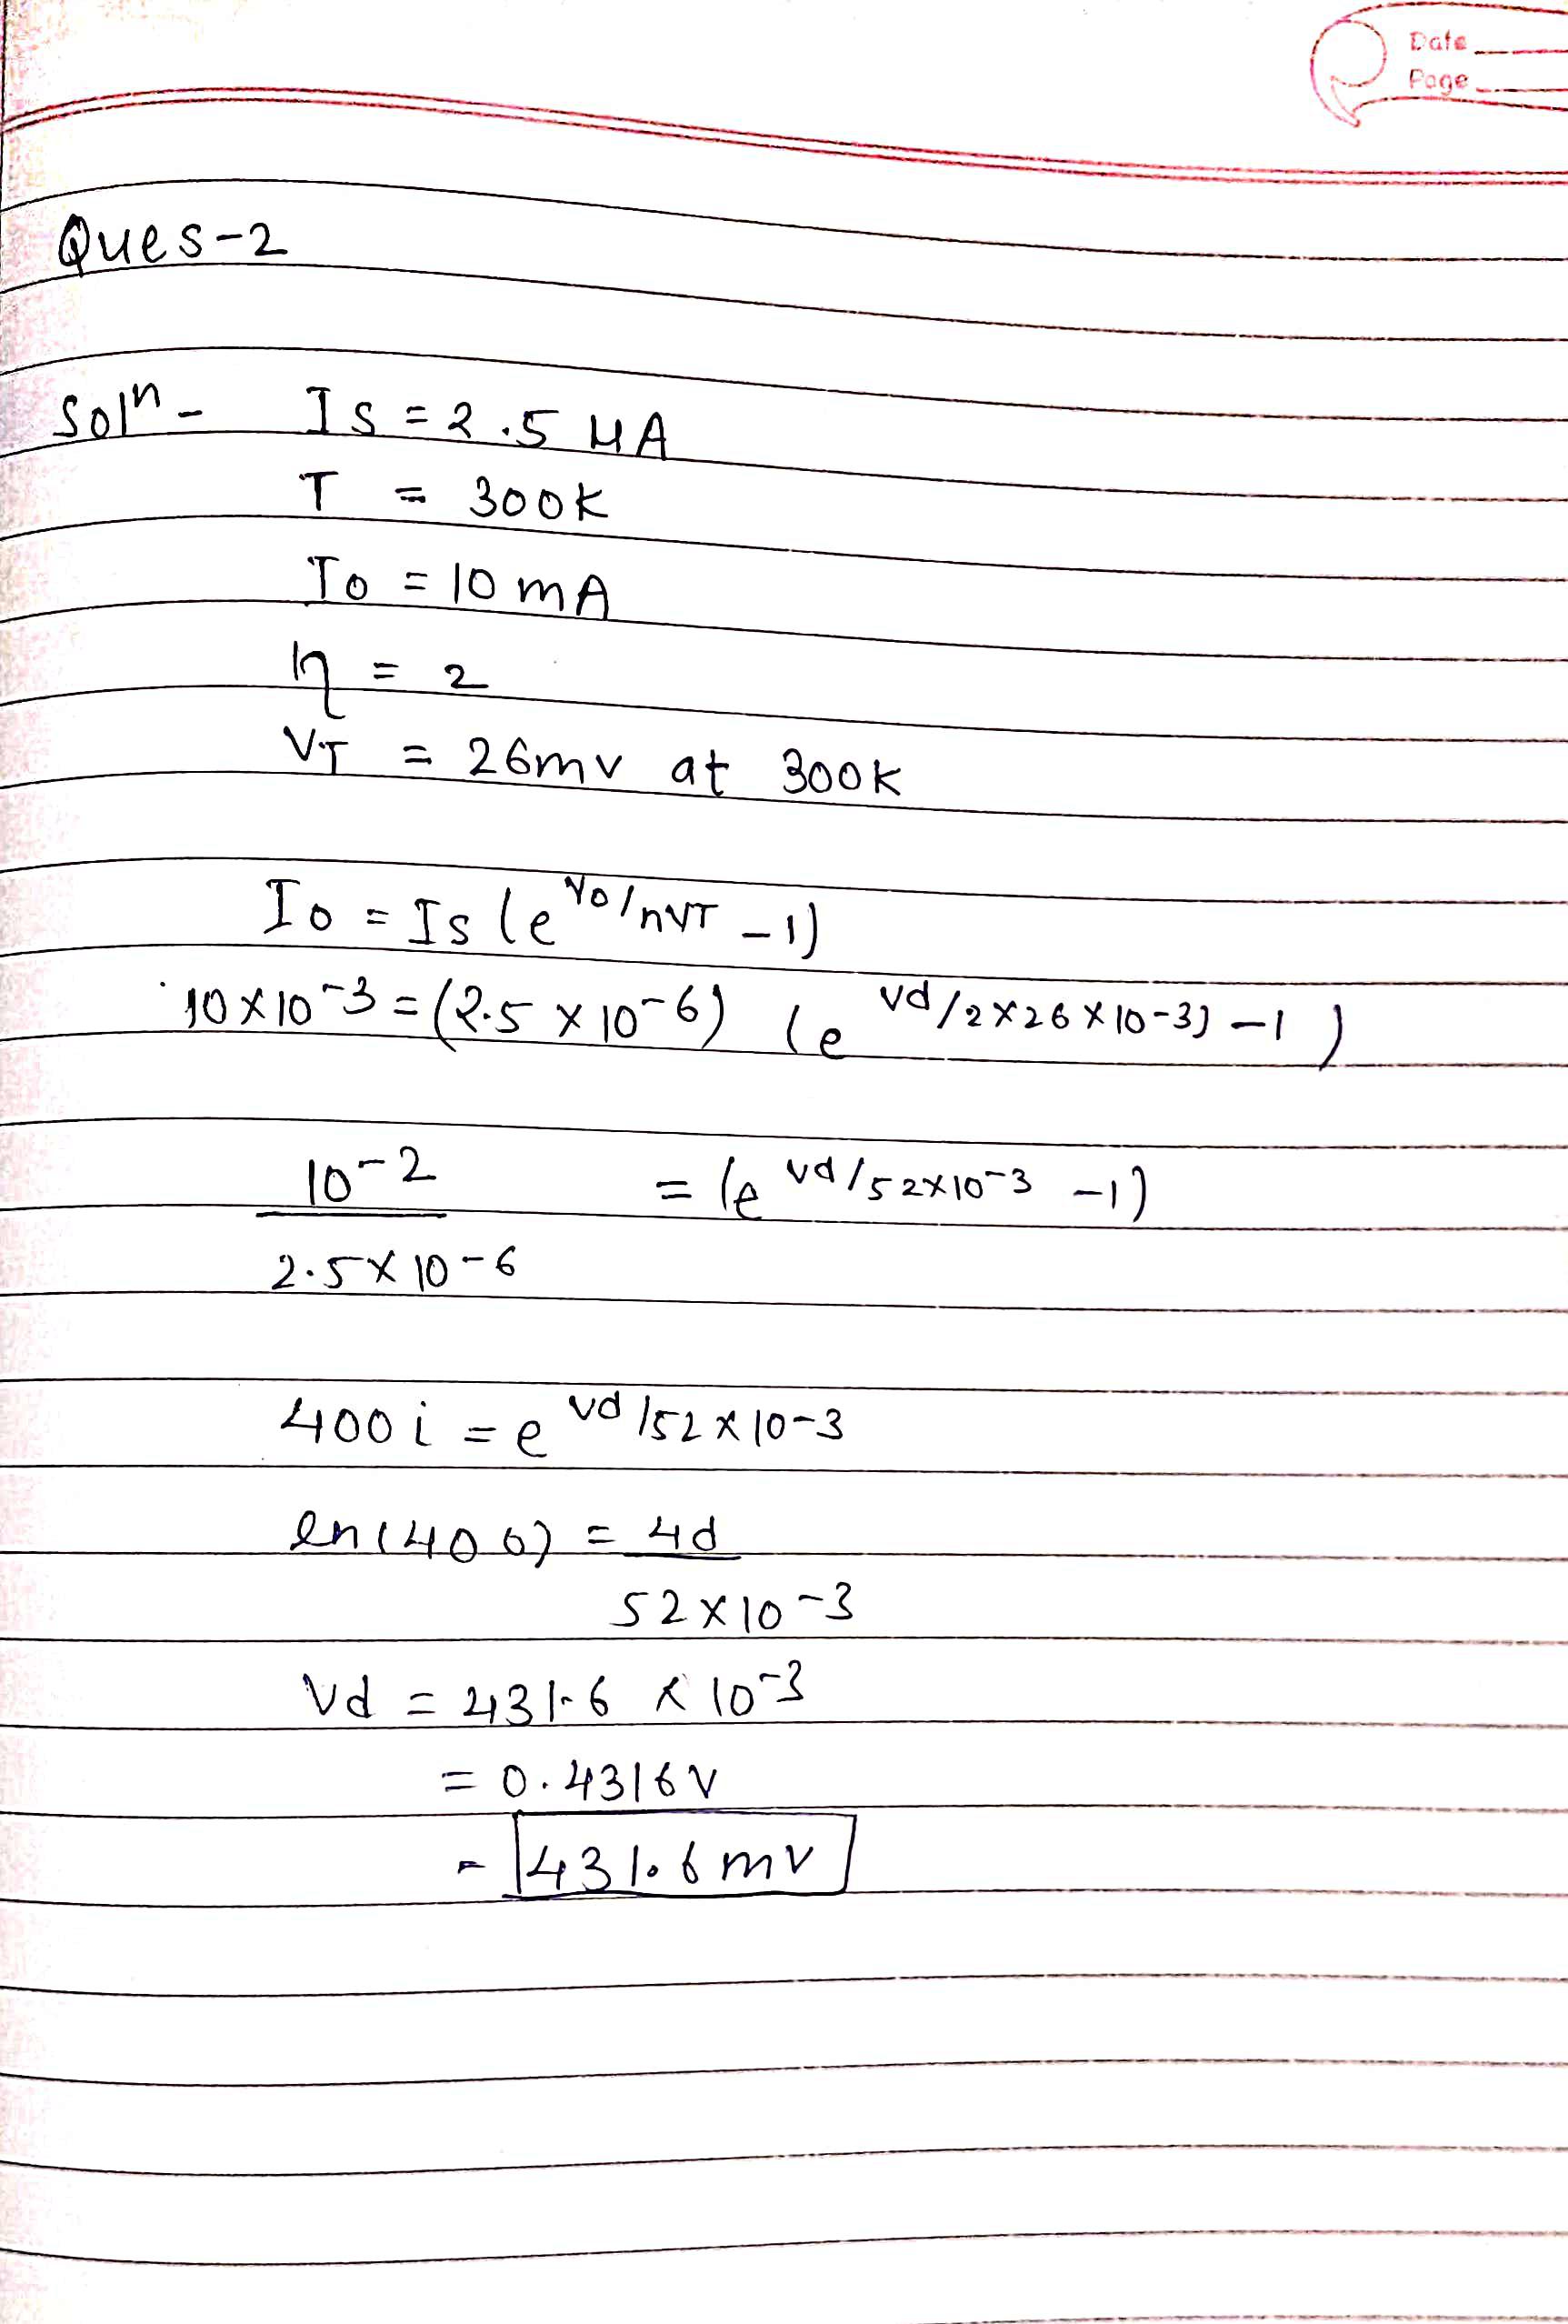 Date
Page
Ques-2
Solⁿ - Is = 2.5 μA
T = 300K
Io = 10 mA
η = 2
VT = 26mv at 300K
Io = Is (e^Vo/nVT - 1)
10×10^-3 = (2.5 × 10^-6) (e^vd/2×26×10^-3) -1)
10^-2 = (e^vd/52×10^-3 -1)
2.5×10^-6
400i = e^vd/52×10^-3
ln(400) = 4d
52×10^-3
Vd = 431.6 × 10^-3
= 0.4316V
= 431.6 mv